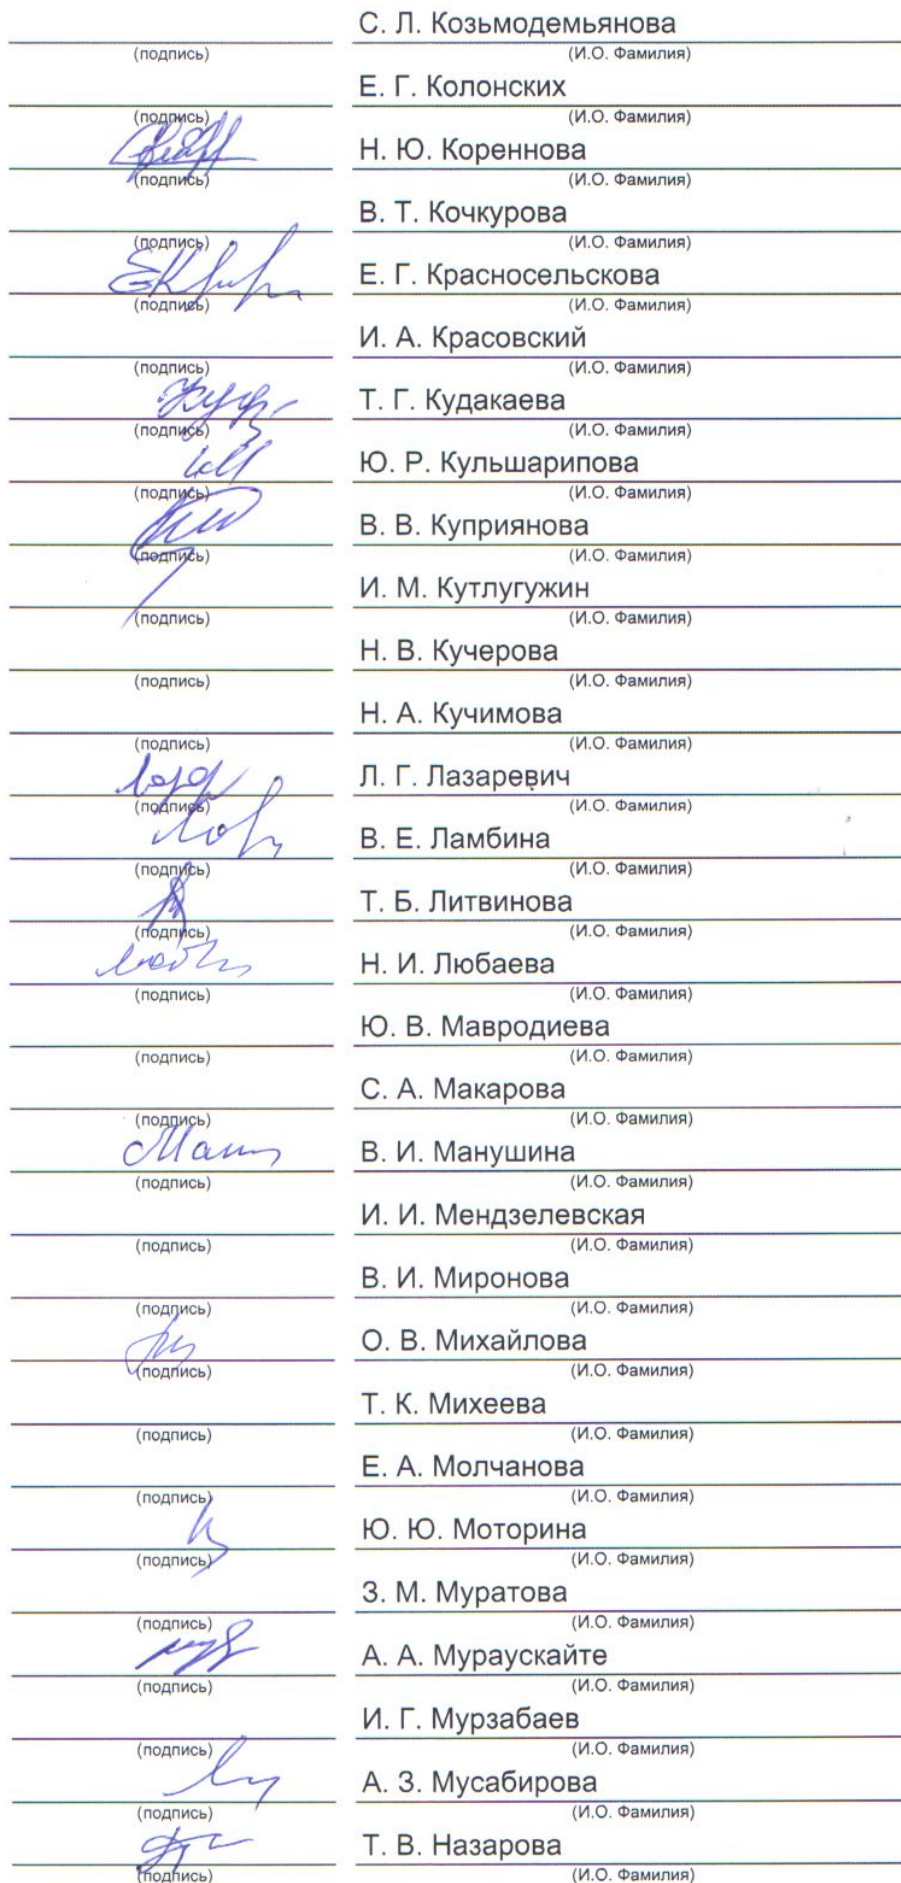 С. Л. Козьмодемьянова
(подпись) (И.О. Фамилия)
Е. Г. Колонских
(подпись) (И.О. Фамилия)
Н. Ю. Кореннова
(подпись) (И.О. Фамилия)
В. Т. Кочкурова
(подпись) (И.О. Фамилия)
Е. Г. Красносельскова
(подпись) (И.О. Фамилия)
И. А. Красовский
(подпись) (И.О. Фамилия)
Т. Г. Кудакаева
(подпись) (И.О. Фамилия)
Ю. Р. Кульшарипова
(подпись) (И.О. Фамилия)
В. В. Куприянова
(подпись) (И.О. Фамилия)
И. М. Кутлугужин
(подпись) (И.О. Фамилия)
Н. В. Кучерова
(подпись) (И.О. Фамилия)
Н. А. Кучимова
(подпись) (И.О. Фамилия)
Л. Г. Лазаревич
(подпись) (И.О. Фамилия)
В. Е. Ламбина
(подпись) (И.О. Фамилия)
Т. Б. Литвинова
(подпись) (И.О. Фамилия)
Н. И. Любаева
(подпись) (И.О. Фамилия)
Ю. В. Мавродиева
(подпись) (И.О. Фамилия)
С. А. Макарова
(подпись) (И.О. Фамилия)
В. И. Манушина
(подпись) (И.О. Фамилия)
И. И. Мендзелевская
(подпись) (И.О. Фамилия)
В. И. Миронова
(подпись) (И.О. Фамилия)
О. В. Михайлова
(подпись) (И.О. Фамилия)
Т. К. Михеева
(подпись) (И.О. Фамилия)
Е. А. Молчанова
(подпись) (И.О. Фамилия)
Ю. Ю. Моторина
(подпись) (И.О. Фамилия)
З. М. Муратова
(подпись) (И.О. Фамилия)
А. А. Мураускайте
(подпись) (И.О. Фамилия)
И. Г. Мурзабаев
(подпись) (И.О. Фамилия)
А. З. Мусабирова
(подпись) (И.О. Фамилия)
Т. В. Назарова
(подпись) (И.О. Фамилия)